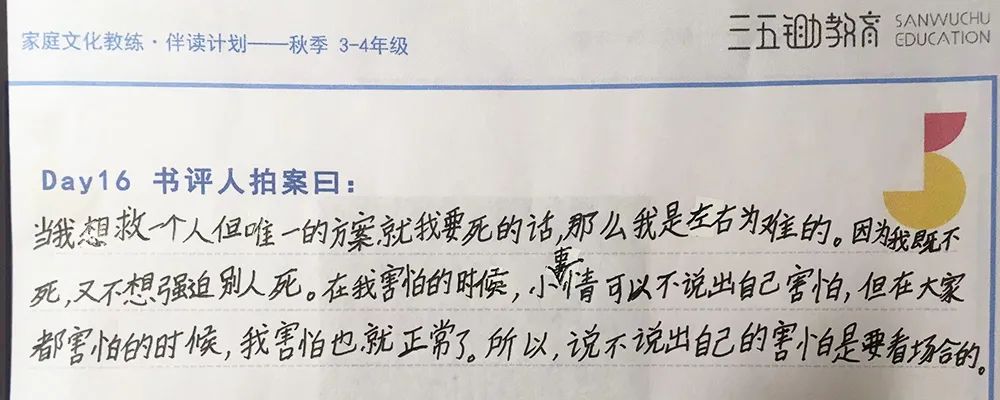 家庭文化教练·伴读计划——秋季 3-4年级
三五锄教育 SANWUCHU EDUCATION
Day16 书评人拍案曰：
当我想救一个人但唯一的方案就我要死的话，那么我是左右为难的。因为我既不
死，又不想强迫别人死。在我害怕的时候，小事情可以不说出自己害怕，但在大家
都害怕的时候，我害怕也就正常了。所以，说不说出自己的害怕是要看场合的。